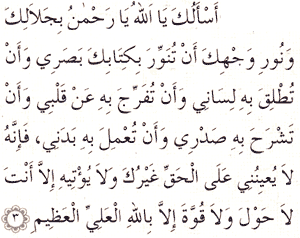 أَسْأَلُكَ يَا اَللهُ يَا رَحْمٰنُ بِجَلاَلِكَ
وَنُورِ وَجْهِكَ أَنْ تُنَوِّرَ بِكِتَابِكَ بَصَرِي وَأَنْ
تُطْلِقَ بِهِ لِسَانِي وَأَنْ تُفَرِّجَ بِهِ عَنْ قَلْبِي وَأَنْ
تَشْرَحَ بِهِ صَدْرِي وَأَنْ تُعْمِلَ بِهِ بَدَنِي، فَإِنَّهُ
لاَ يُعِينُنِي عَلَى الْحَقِّ غَيْرُكَ وَلاَ يُؤْتِيهِ إِلاَّ أَنْتَ
لاَ حَوْلَ وَلاَ قُوَّةَ إِلاَّ بِاللهِ الْعَلِيِّ الْعَظِيمِ ٣